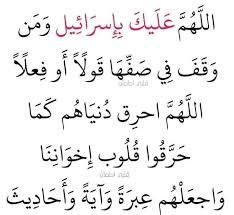 اللَّهُمَّ عَلَيْكَ بِإِسْرَائِيل وَمَن
وَقَفَ فِي صَفِّهَا قَوْلًا أَو فِعلاً
اللَّهُمَّ احرِق دُنيَاهُم كَمَا
حَرَّقُوا قُلُوب إِخوَانِنَا
وَاجعَلْهُم عِبرَةً وَآيَةً وَأَحَادِيثَ